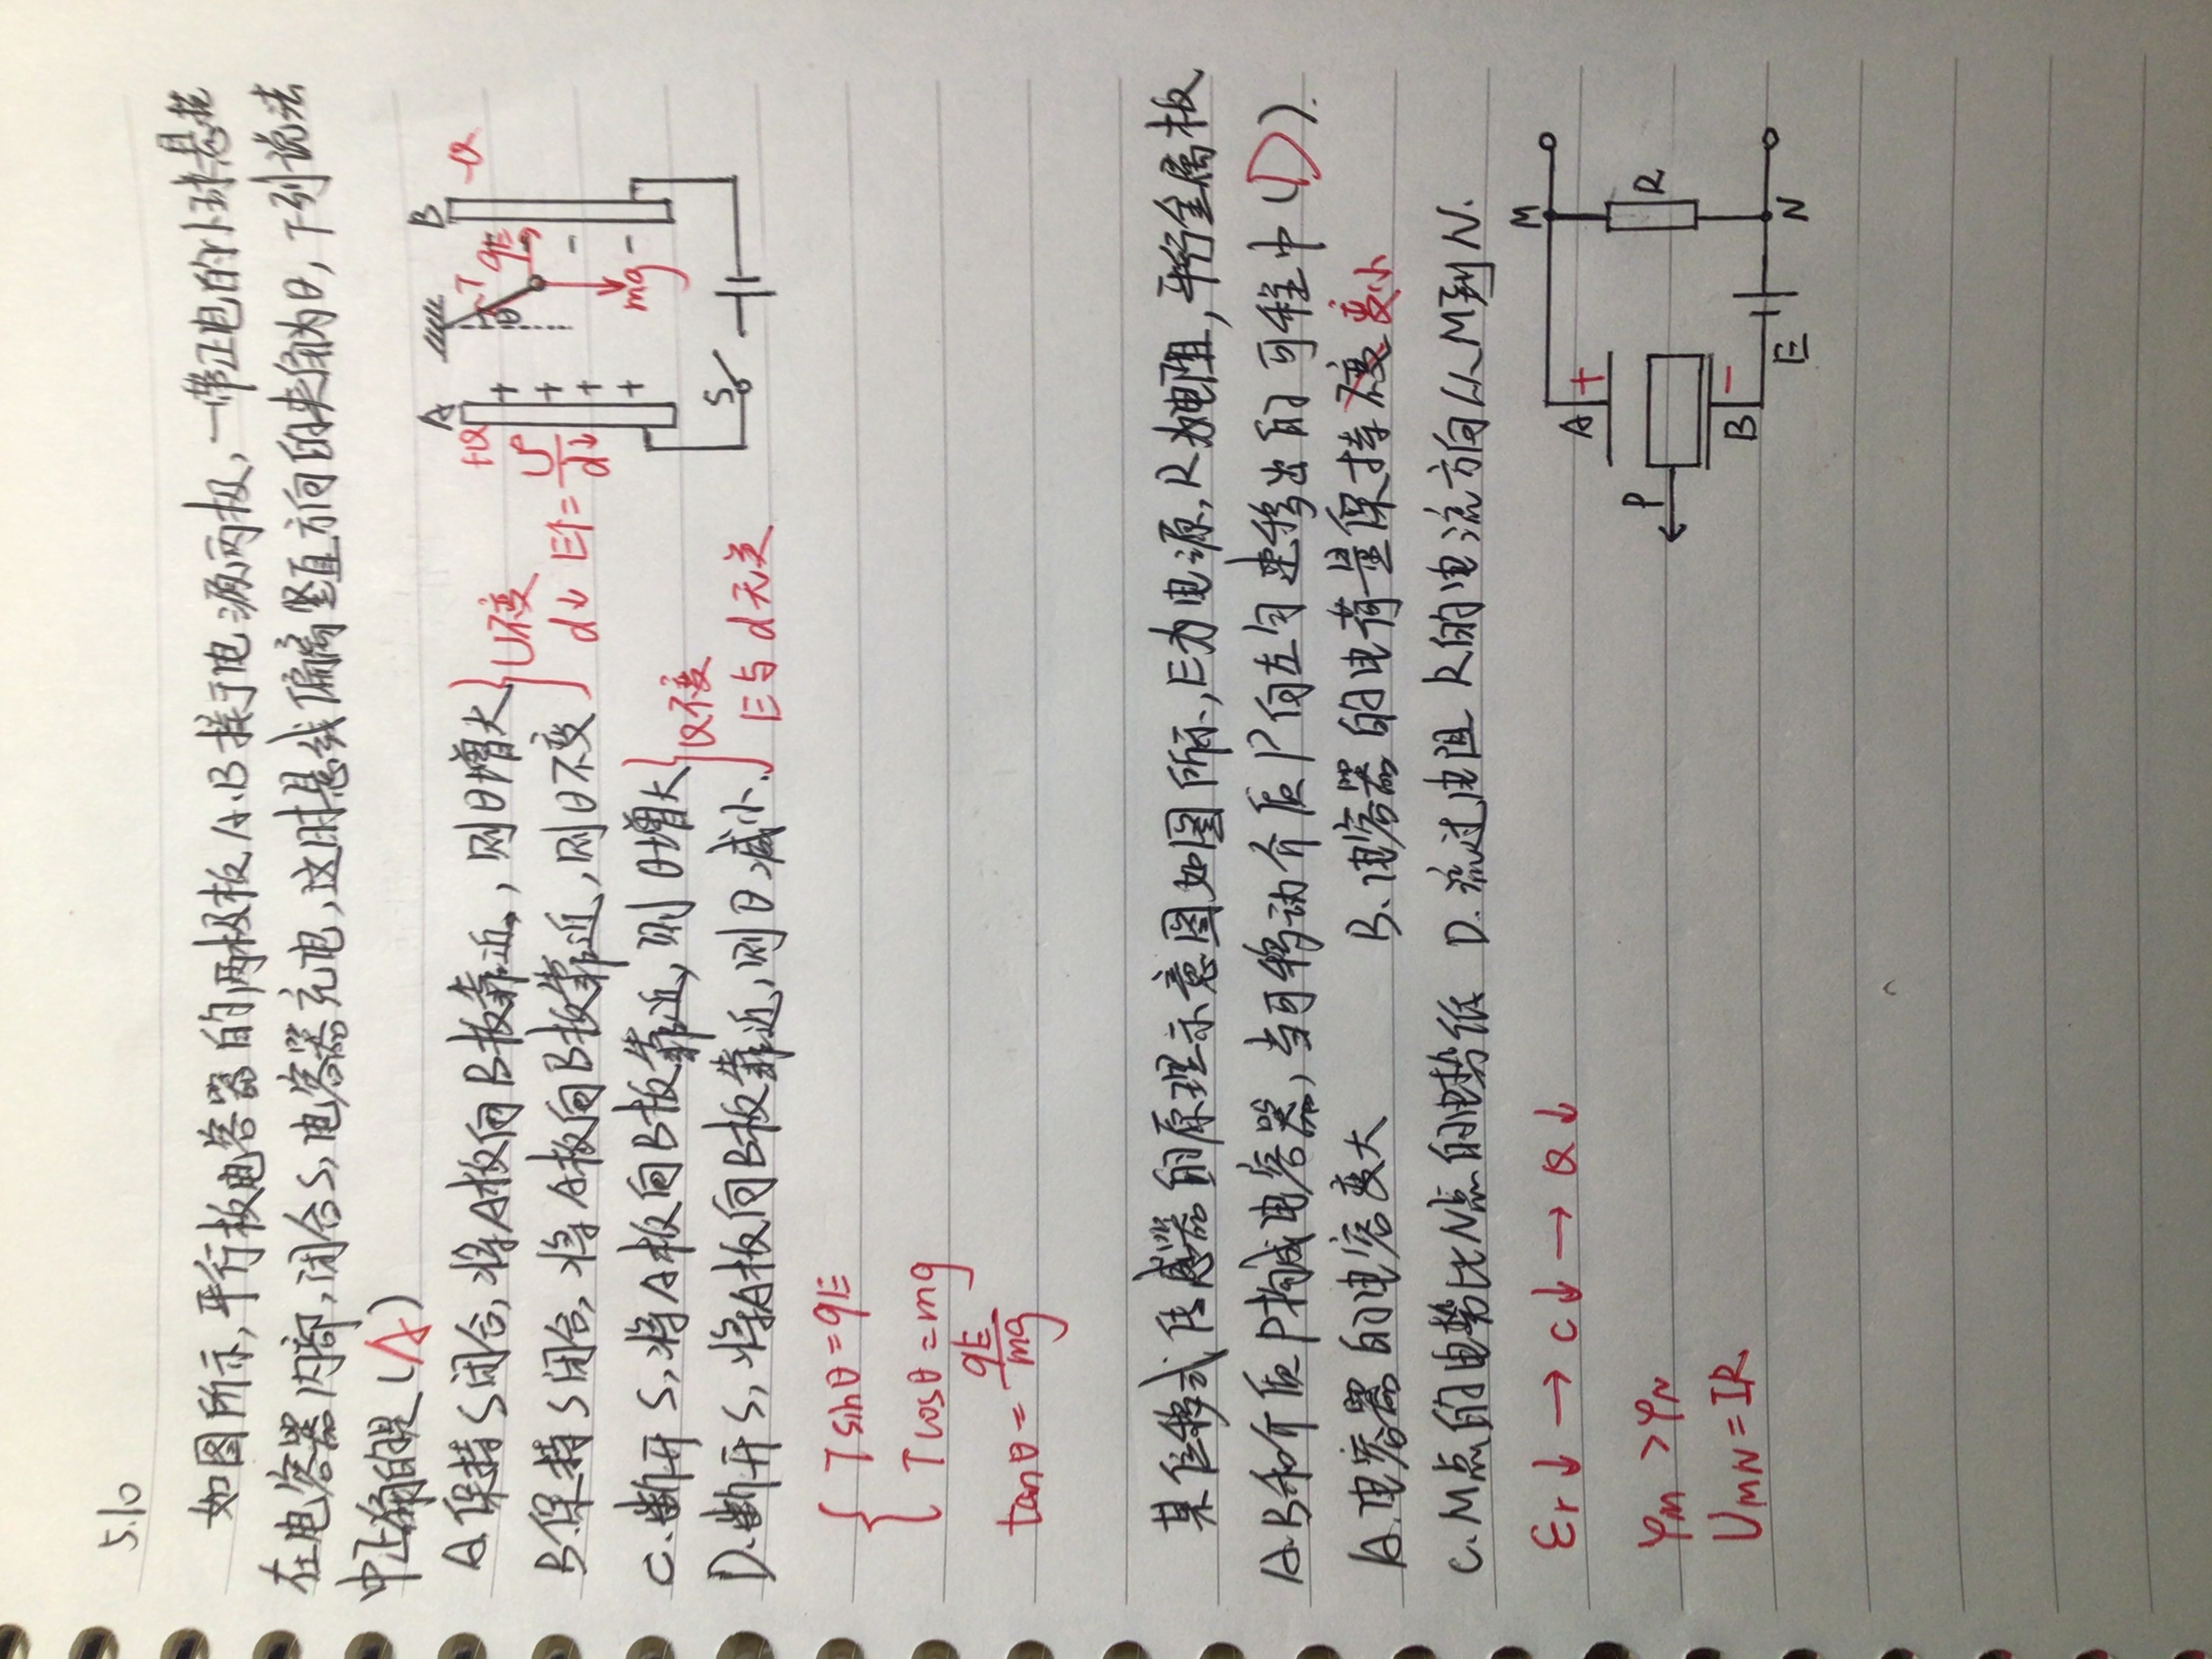 5.10
如图所示,平行板电容器的两极板A、B接于电源两极,一带正电的小球悬挂
在电容器内部,闭合S,电容器充电,这时悬线偏离竖直方向的夹角为θ,下列说法
中正确的是(A)
A.保持S闭合,将A板向B板靠近,则θ增大
B.保持S闭合,将A板向B板靠近,则θ不变
U不变
d↓ E↑=U/d↓
C.断开S,将A板向B板靠近,则θ增大
D.断开S,将A板向B板靠近,则θ减小.
Q不变
E与d无关
A B
+Q -Q
θ T qE
+ + + +
- - -
mg
S
Tsinθ=qE
Tcosθ=mg
tanθ=qE/mg
某位移式传感器的原理示意图如图所示,E为电源,R为电阻,平行金属板
A.B和介质P构成电容器,当可移动介质P向左匀速移出的过程中(D).
A.电容器的电容变大 B.电容器的电荷量保持不变 变小
C.M点的电势比N点的电势低 D.流过电阻R的电流方向从M到N.
εr↓→C↓→Q↓
φM>φN
UMN=IR
M
A +
P R
B -
E N